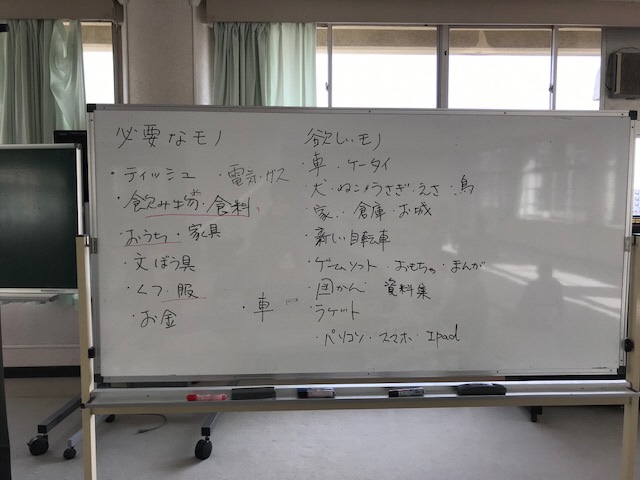 必要なモノ
・ティッシュ ・電気・ガス
・飲み物・食料
・おうち・家具
・文ぼう具
・くつ・服
・お金
・車
欲しいモノ
・車・ケータイ
・犬・ねこ・うさぎ・えさ・鳥
・家・倉庫・お城
・新しい自転車
・ゲームソフト・おもちゃ・まんが
・図かん 資料集
・ラケット
・パソコン・スマホ・Ipad